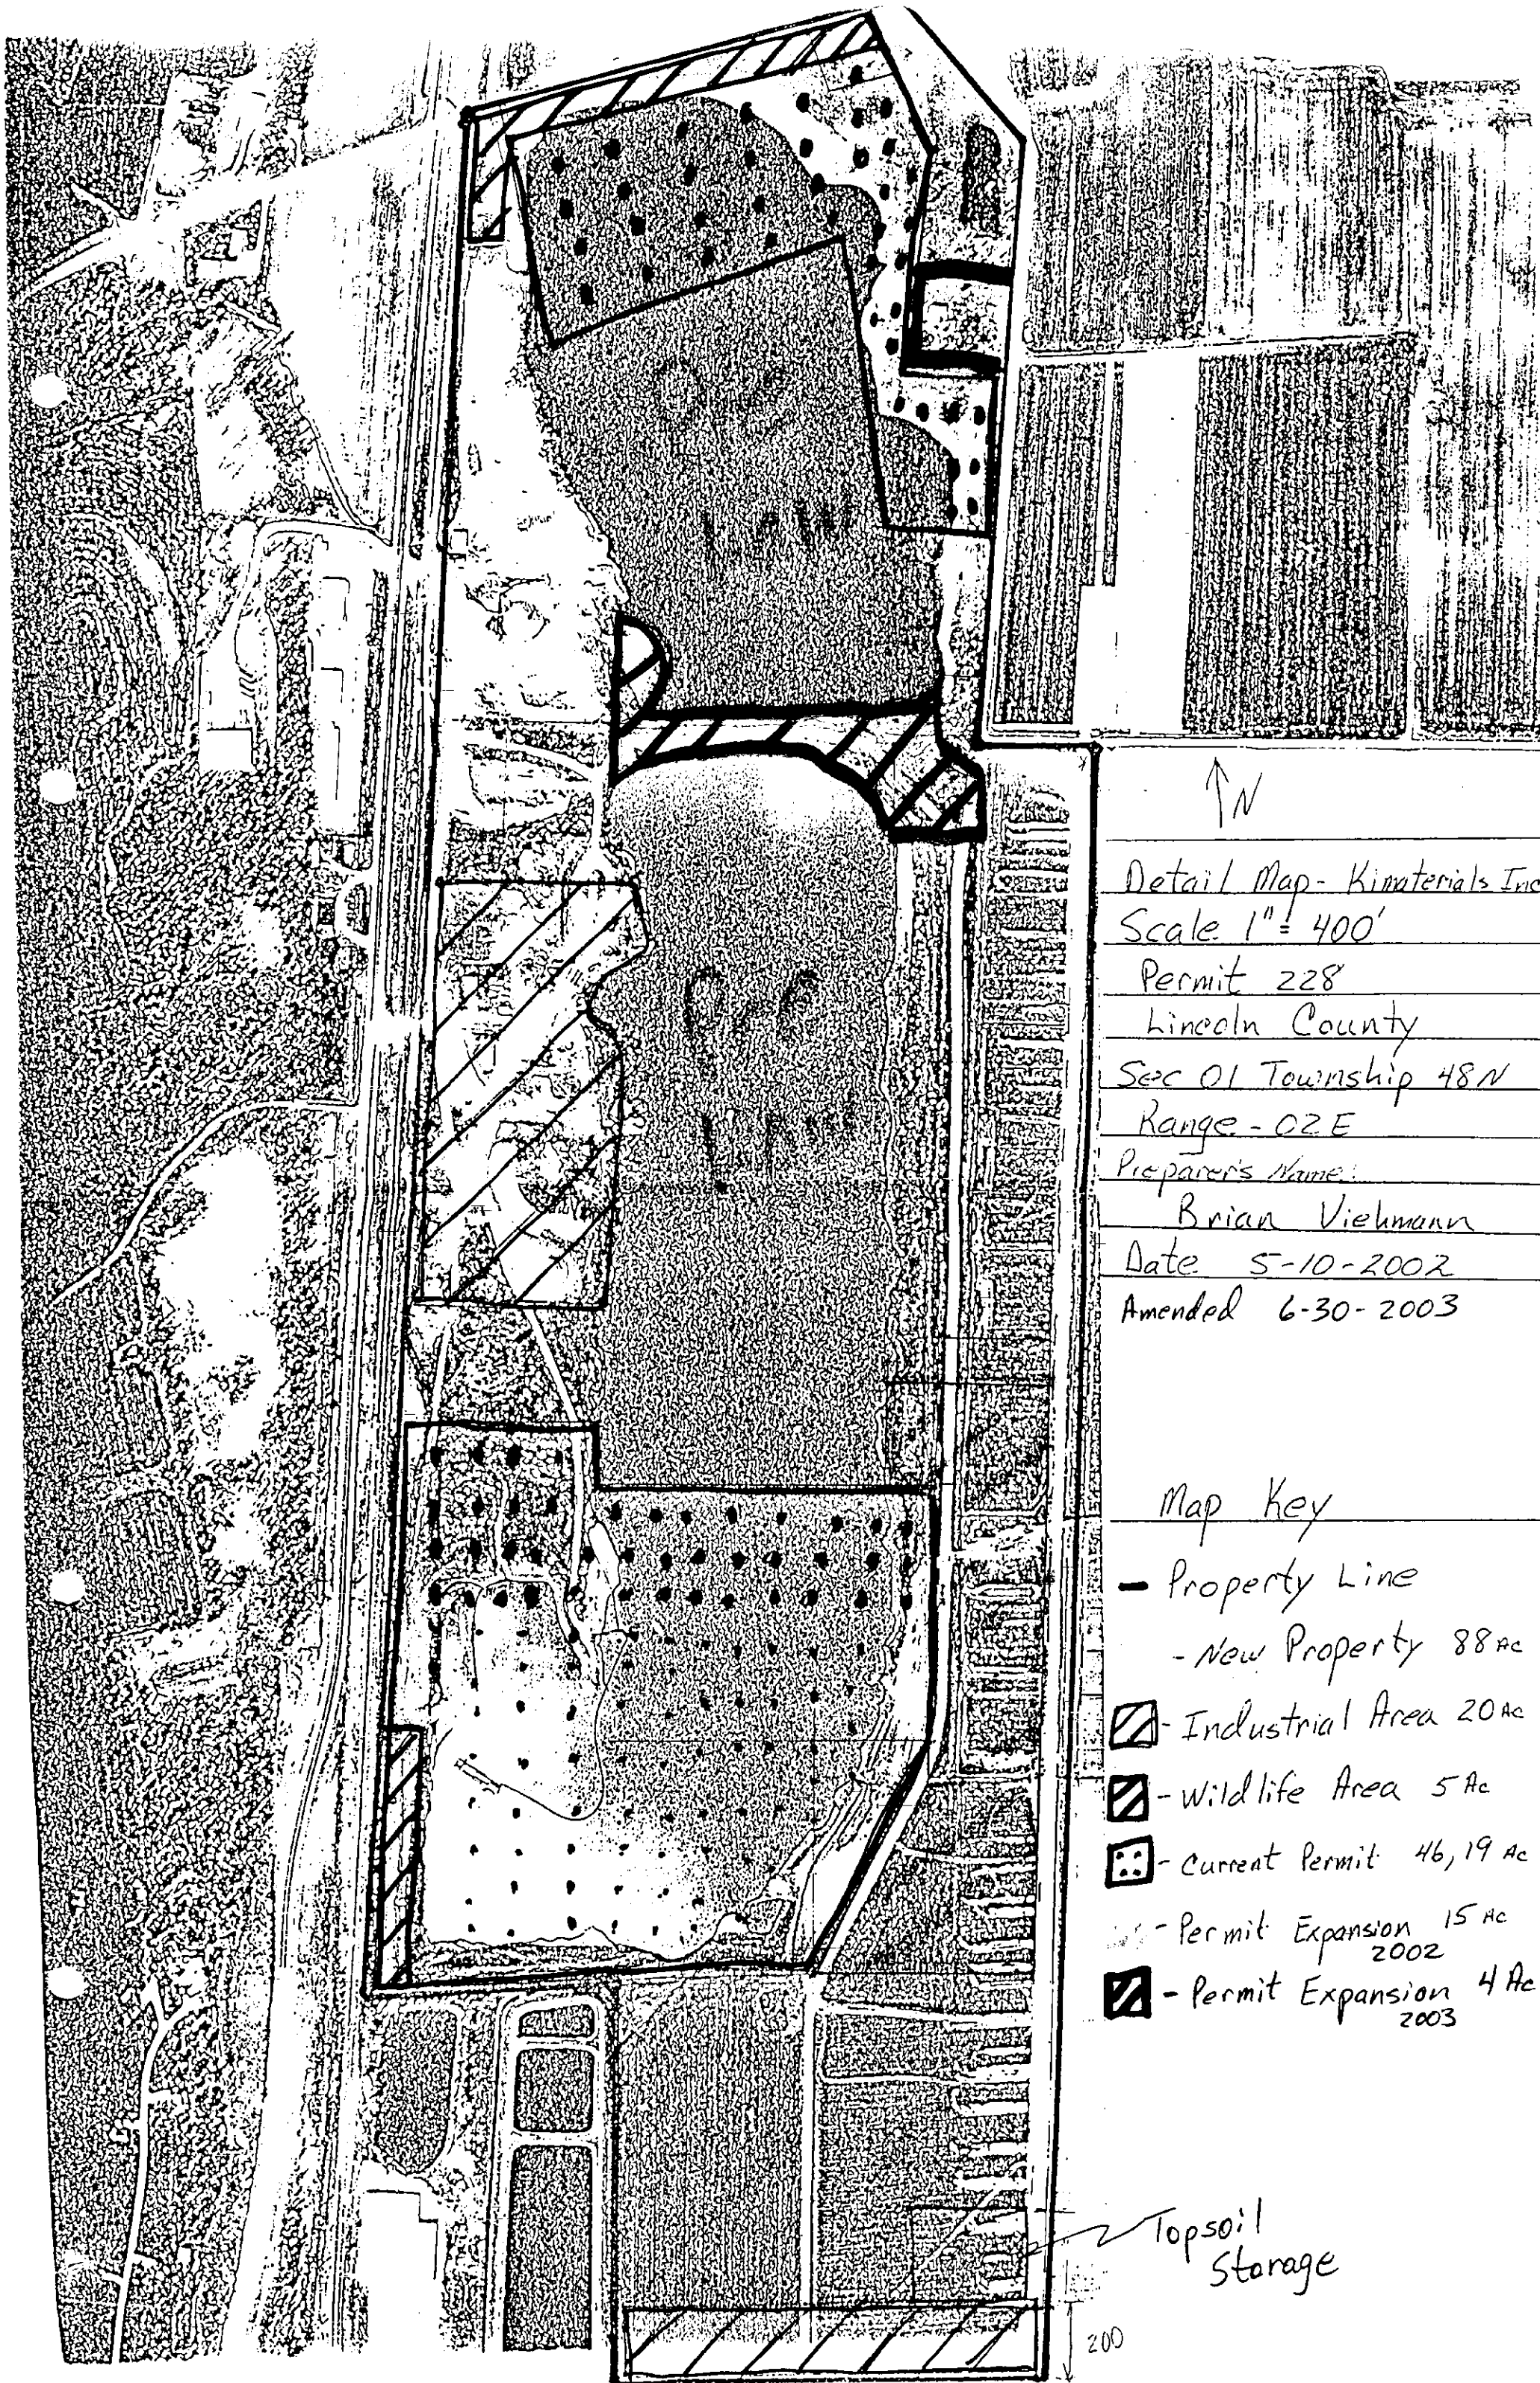 N
Detail Map - Kimaterials Inc
Scale 1" = 400'
Permit 228
Lincoln County
Sec 01 Township 48N
Range - 02E
Preparer's Name:
Brian Viehmann
Date 5-10-2002
Amended 6-30-2003
Map Key
- Property Line
- New Property 88 Ac
- Industrial Area 20 Ac
- Wildlife Area 5 Ac
- Current Permit 46,19 Ac
- Permit Expansion 15 Ac
2002
- Permit Expansion 4 Ac
2003
Topsoil
Storage
200